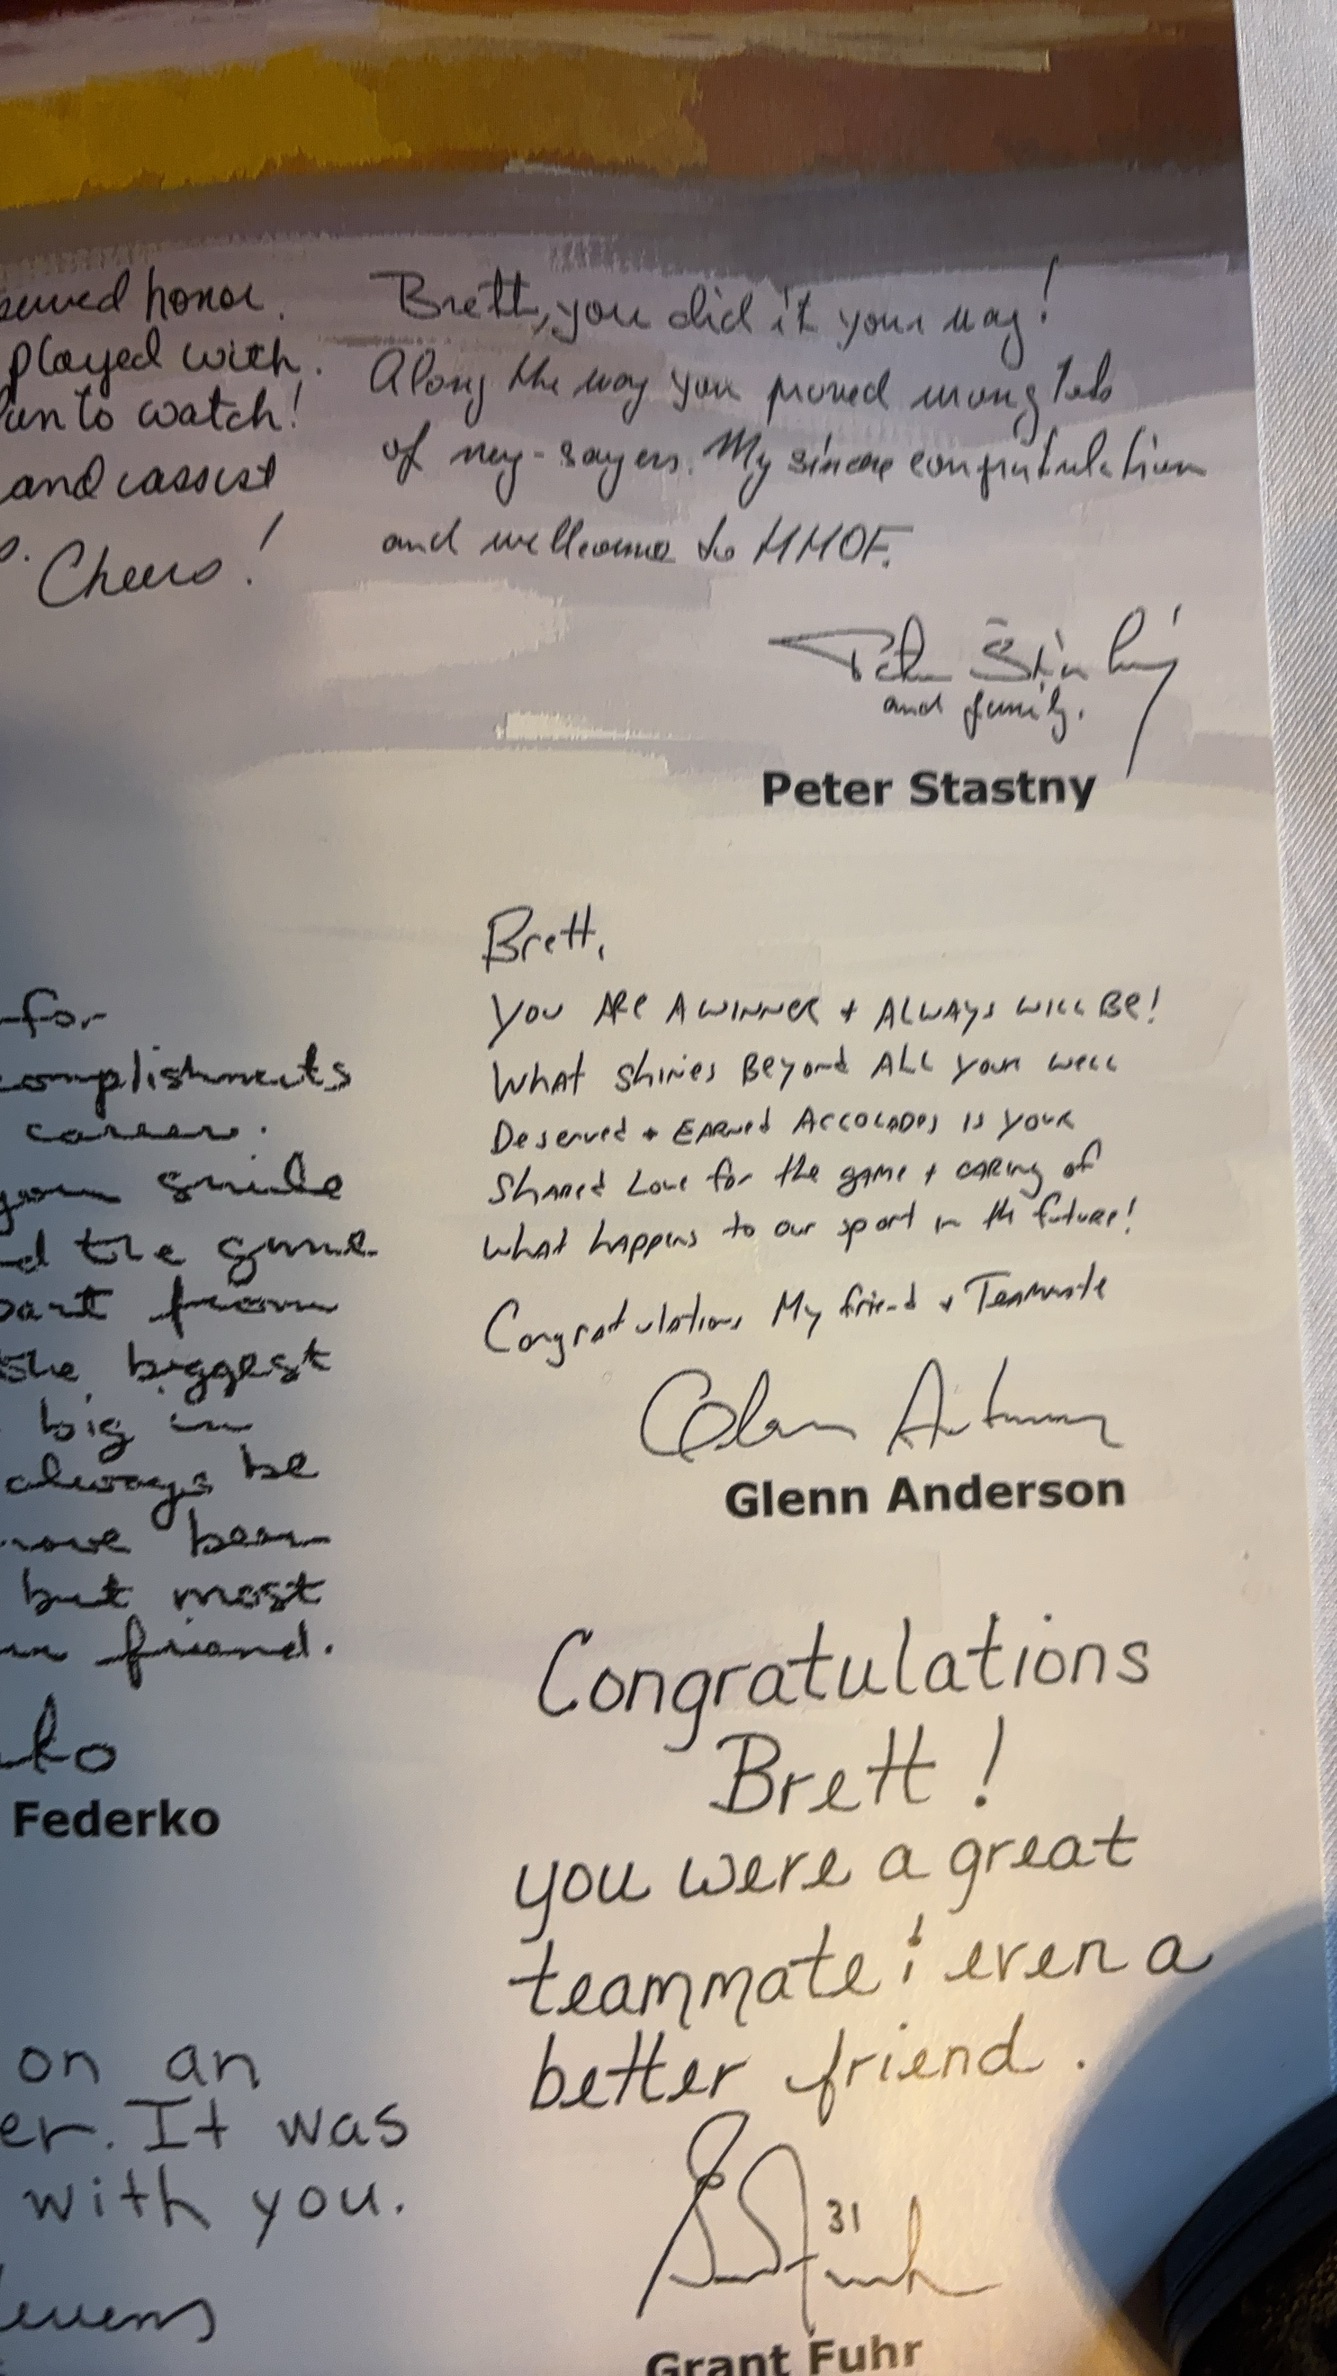 served honor.
played with.
un to watch!
and assist
Cheers!
Brett, you did it your way!
Along the way you proved wrong lots
of ney-sayers. My sincere congratulation
and wellcome to HHOF.
Peter Stastny
and family.
Peter Stastny
for
complishments
career.
your smile
d the game
part from
the biggest
big in
always be
have been
but most
friend.
ko
Federko
on an
er. It was
with you.
evens
Brett,
You ARE A WINNER + ALWAYS WILL BE!
What shines Beyond ALL your well
Deserved + EARNed Accolades is your
Shared Love for the game + CARing of
what happens to our sport in th future!
Congratulations My friend + Teammate
Glenn Anderson
Glenn Anderson
Congratulations
Brett!
you were a great
teammate & even a
better friend.
Grant Fuhr 31
Grant Fuhr